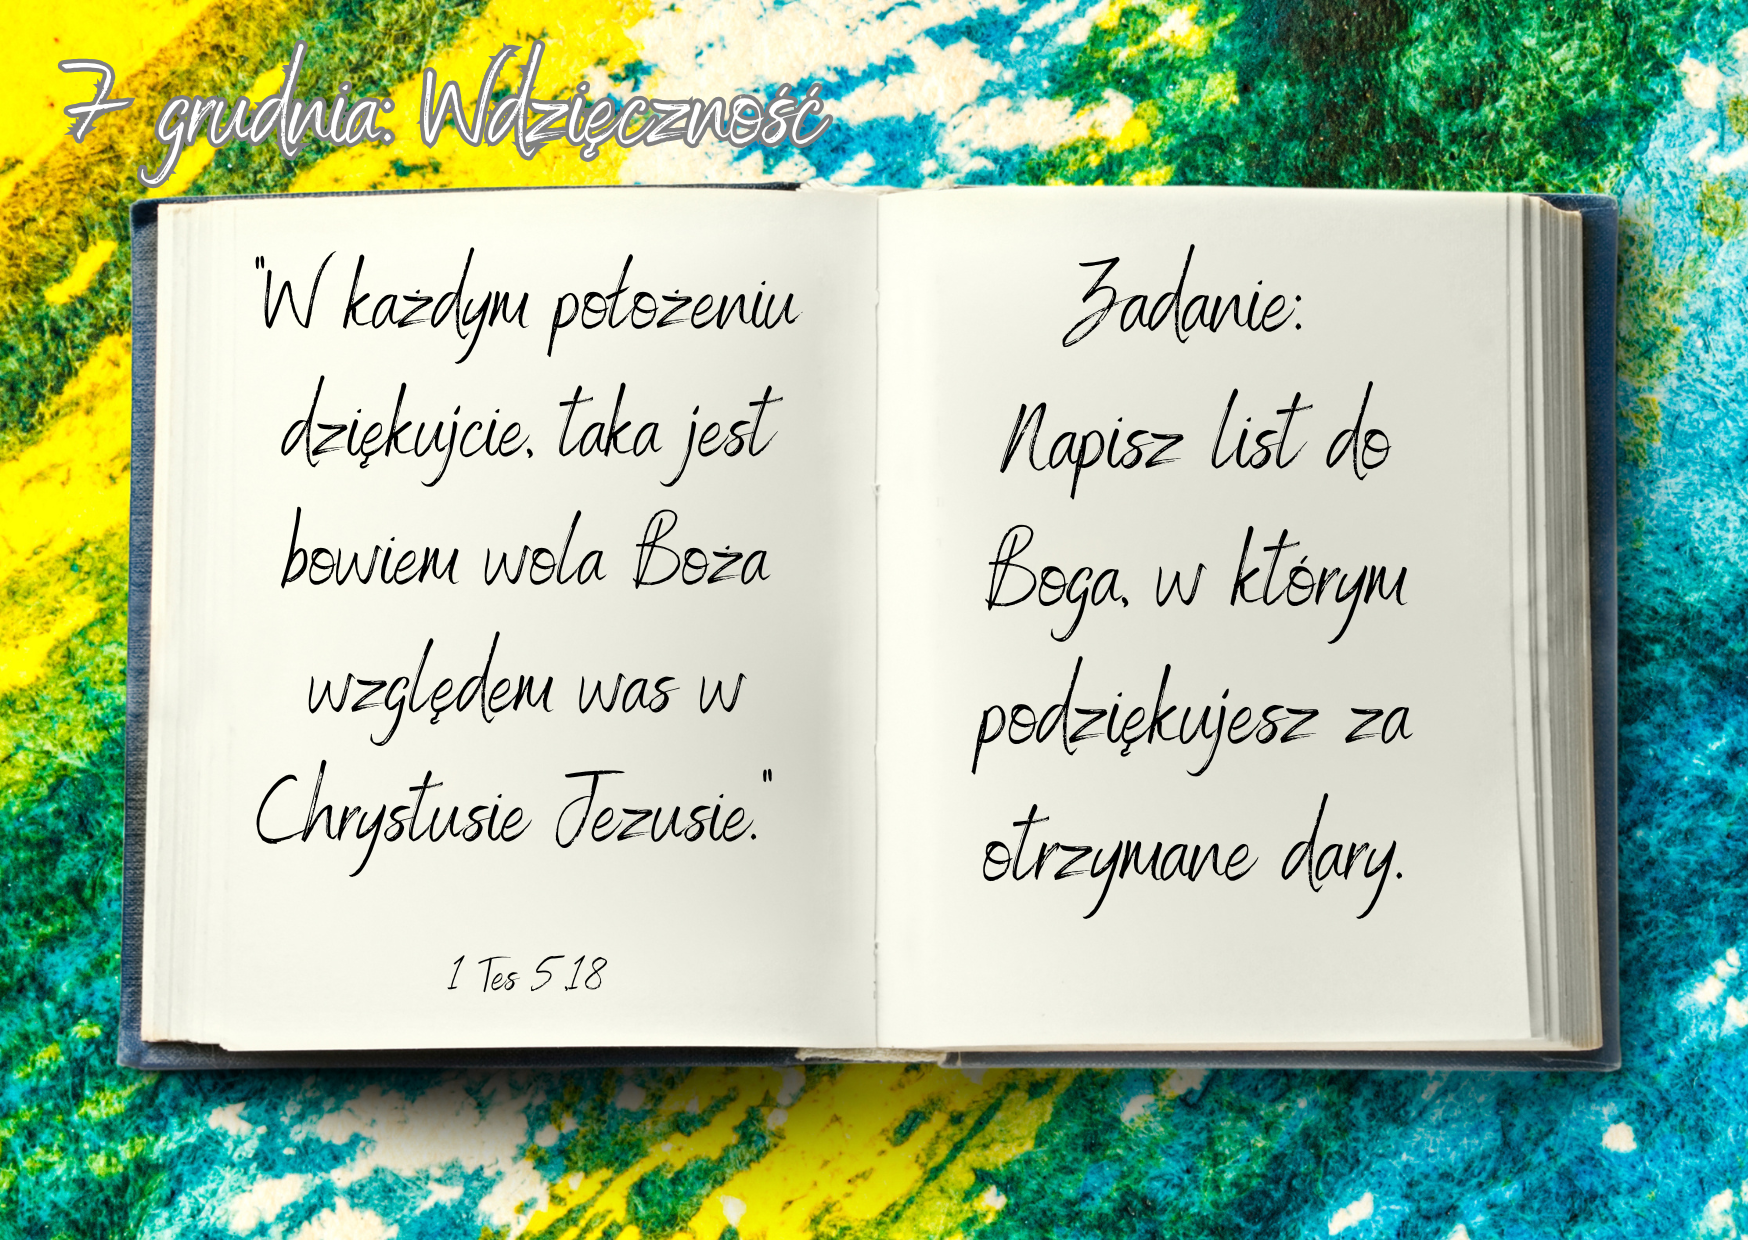 7 grudnia: Wdzięczność
"W każdym położeniu
dziękujcie, taka jest
bowiem wola Boża
względem was w
Chrystusie Jezusie."
1 Tes 5,18
Zadanie:
Napisz list do
Boga, w którym
podziękujesz za
otrzymane dary.